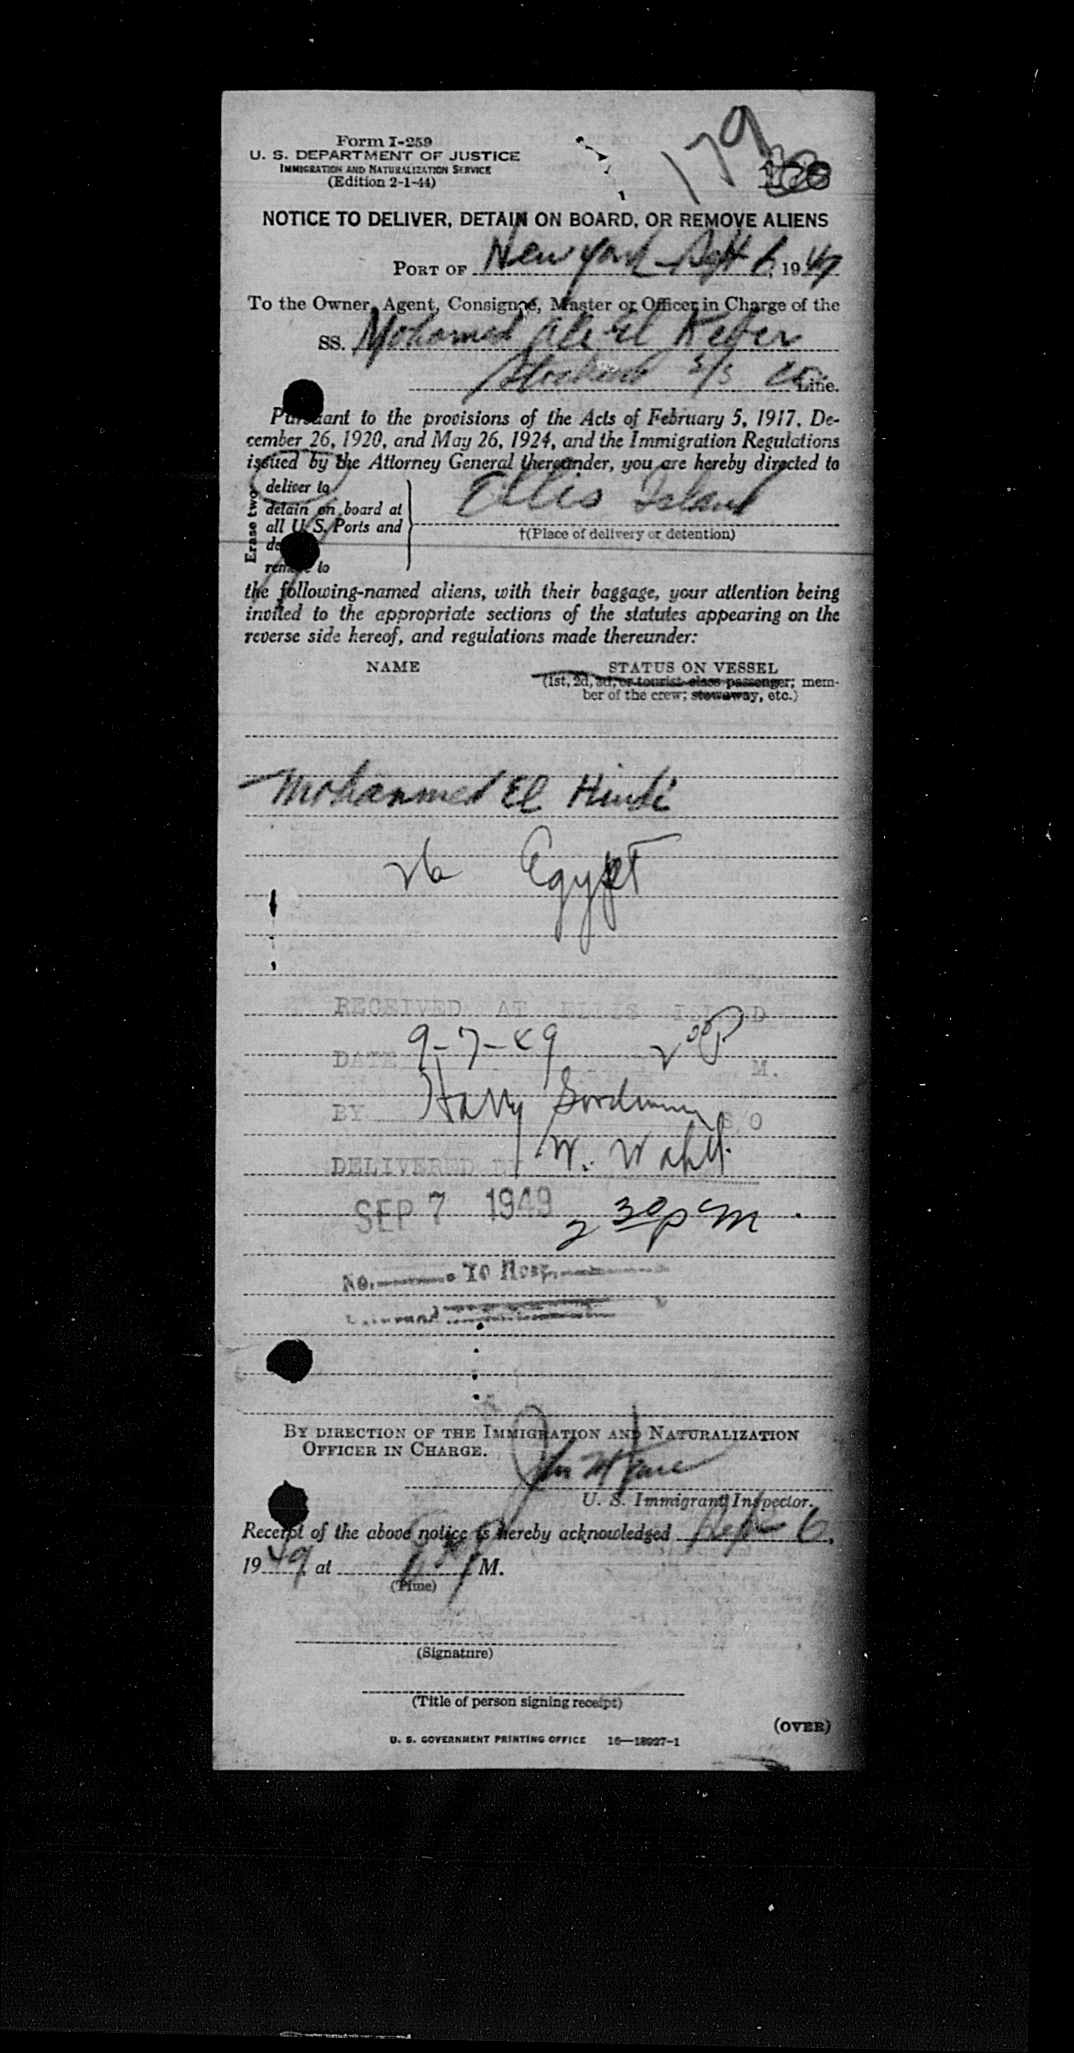 179
Form I-259
U. S. DEPARTMENT OF JUSTICE
IMMIGRATION AND NATURALIZATION SERVICE
(Edition 2-1-44)
NOTICE TO DELIVER, DETAIN ON BOARD, OR REMOVE ALIENS
PORT OF New York Sept 6, 1949
To the Owner, Agent, Consignee, Master or Officer in Charge of the
SS. Mohamed Ali El Kebir
S/S Co Line.
Pursuant to the provisions of the Acts of February 5, 1917, De-
cember 26, 1920, and May 26, 1924, and the Immigration Regulations
issued by the Attorney General thereunder, you are hereby directed to
Erase two
deliver to
detain on board at
all U. S. Ports and
remove to
Ellis Island
†(Place of delivery or detention)
the following-named aliens, with their baggage, your attention being
invited to the appropriate sections of the statutes appearing on the
reverse side hereof, and regulations made thereunder:
NAME STATUS ON VESSEL
(1st, 2d, 3d, or tourist class passenger; mem-
ber of the crew; stowaway, etc.)
Mohammed El Hindi
26 Egypt
RECEIVED AT ELLIS ISLAND
DATE 9-7-49 2 00 P M.
BY Harry S O
DELIVERED BY W.
SEP 7 1949 2 30 pm
No. To Hosp.
BY DIRECTION OF THE IMMIGRATION AND NATURALIZATION
OFFICER IN CHARGE.
U. S. Immigrant Inspector.
Receipt of the above notice is hereby acknowledged Sept 6,
1949, at M.
(Time)
(Signature)
(Title of person signing receipt)
(OVER)
U. S. GOVERNMENT PRINTING OFFICE 16—18927-1